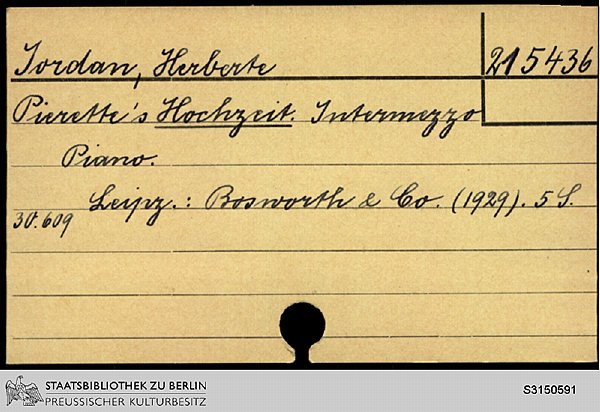 Jordan, Herberte 215436
Pierette's Hochzeit. Intermezzo
Piano.
Leipz.: Bosworth & Co. (1929). 5 S.
30.609
STAATSBIBLIOTHEK ZU BERLIN
PREUSSISCHER KULTURBESITZ
S3150591